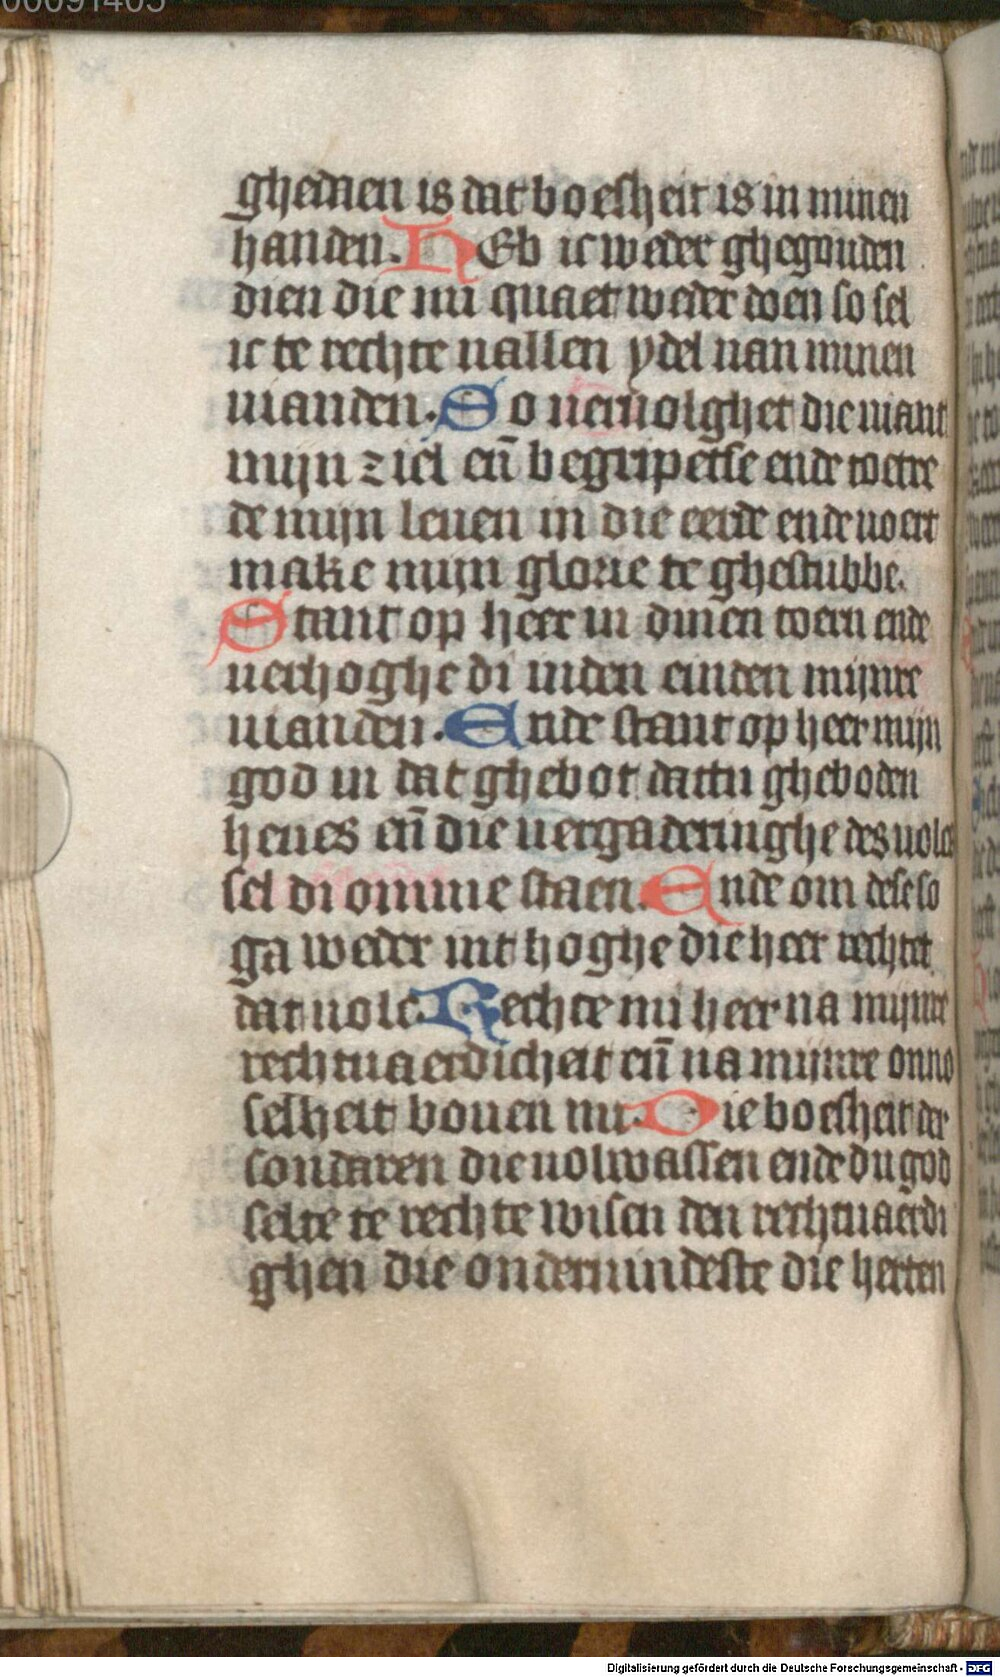 00091405
ghedaen is dat boesheit is in minen
handen. HEb ic weder ghegouden
dien die mi quaet weder doen so sel
ic te rechte uallen ydel uan minen
uianden. So veruolghet die uiant
mijn ziel eñ begripetse ende toetre
de mijn leuen in die eerde ende uoert
make mijn glorie te ghestubbe.
Stant op heer in dinen toern ende
uerhoghe di inden einden mijnre
uianden. Ende stant op heer mijn
god in dat ghebot dattu gheboden
heues eñ die uergaderinghe des uolcs
sel di omme staen. Ende om dese so
ga weder int hoghe die heer rechtet
dat uolc. Rechte mi heer na mijnre
rechtuaerdicheit eñ na mijnre onno
selheit bouen mi. Die boesheit der
sondaren die uolwassen ende du god
selte te rechte wisen den rechtuaerdi
ghen die onderuindeste die herten
Digitalisierung gefördert durch die Deutsche Forschungsgemeinschaft - DFG